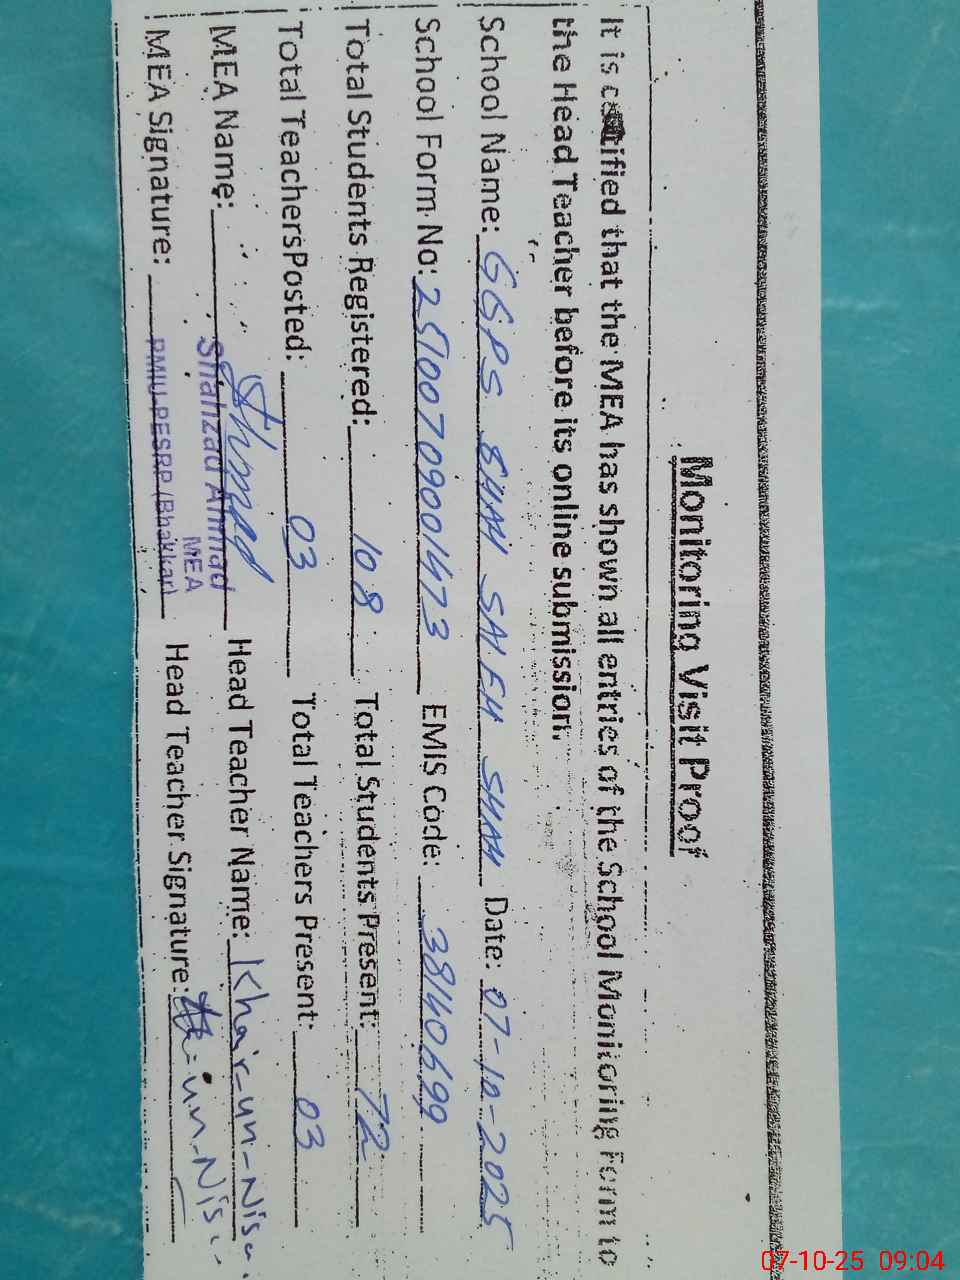 Monitoring Visit Proof
It is certified that the MEA has shown all entries of the School Monitoring Form to
the Head Teacher before its online submission.
School Name: GGPS SHAH SALEH SHAH Date: 07-10-2025
School Form No: 25100709001473 EMIS Code: 38140699
Total Students Registered: 108 Total Students Present: 72
Total TeachersPosted: 03 Total Teachers Present: 03
MEA Name: Ahmad Head Teacher Name: Khair-un-Nisa
Shahzad Ahmad
MEA
MEA Signature: PMIU-PESRP (Bhakkar) Head Teacher Signature: -un-Nis
07-10-25 09:04